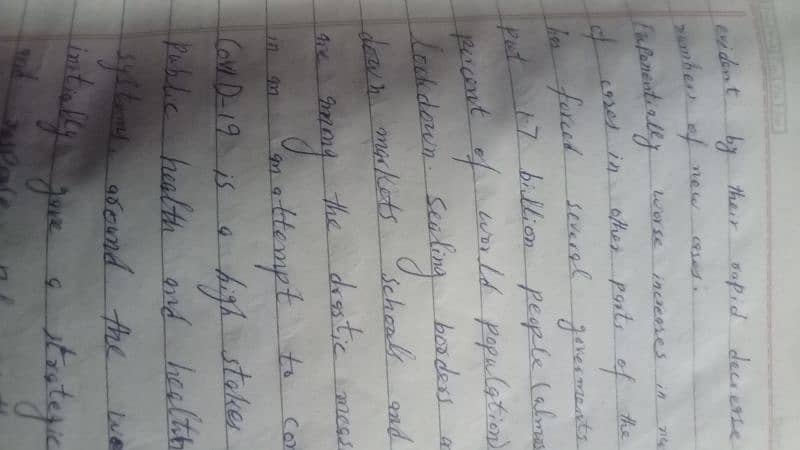 evident by their rapid decrease
numbers of new cases.
Exponentially worse increases in
of cases in other parts of the
has forced several goverments
put 1.7 billion people (almos
percent of world population)
lockdown. Sealing borders a
down markets schools and
are among the drastic meas
in an an attempt to con
COVID-19 is a high stakes
public health and health
systems around the wo
initially gave a strategic
and